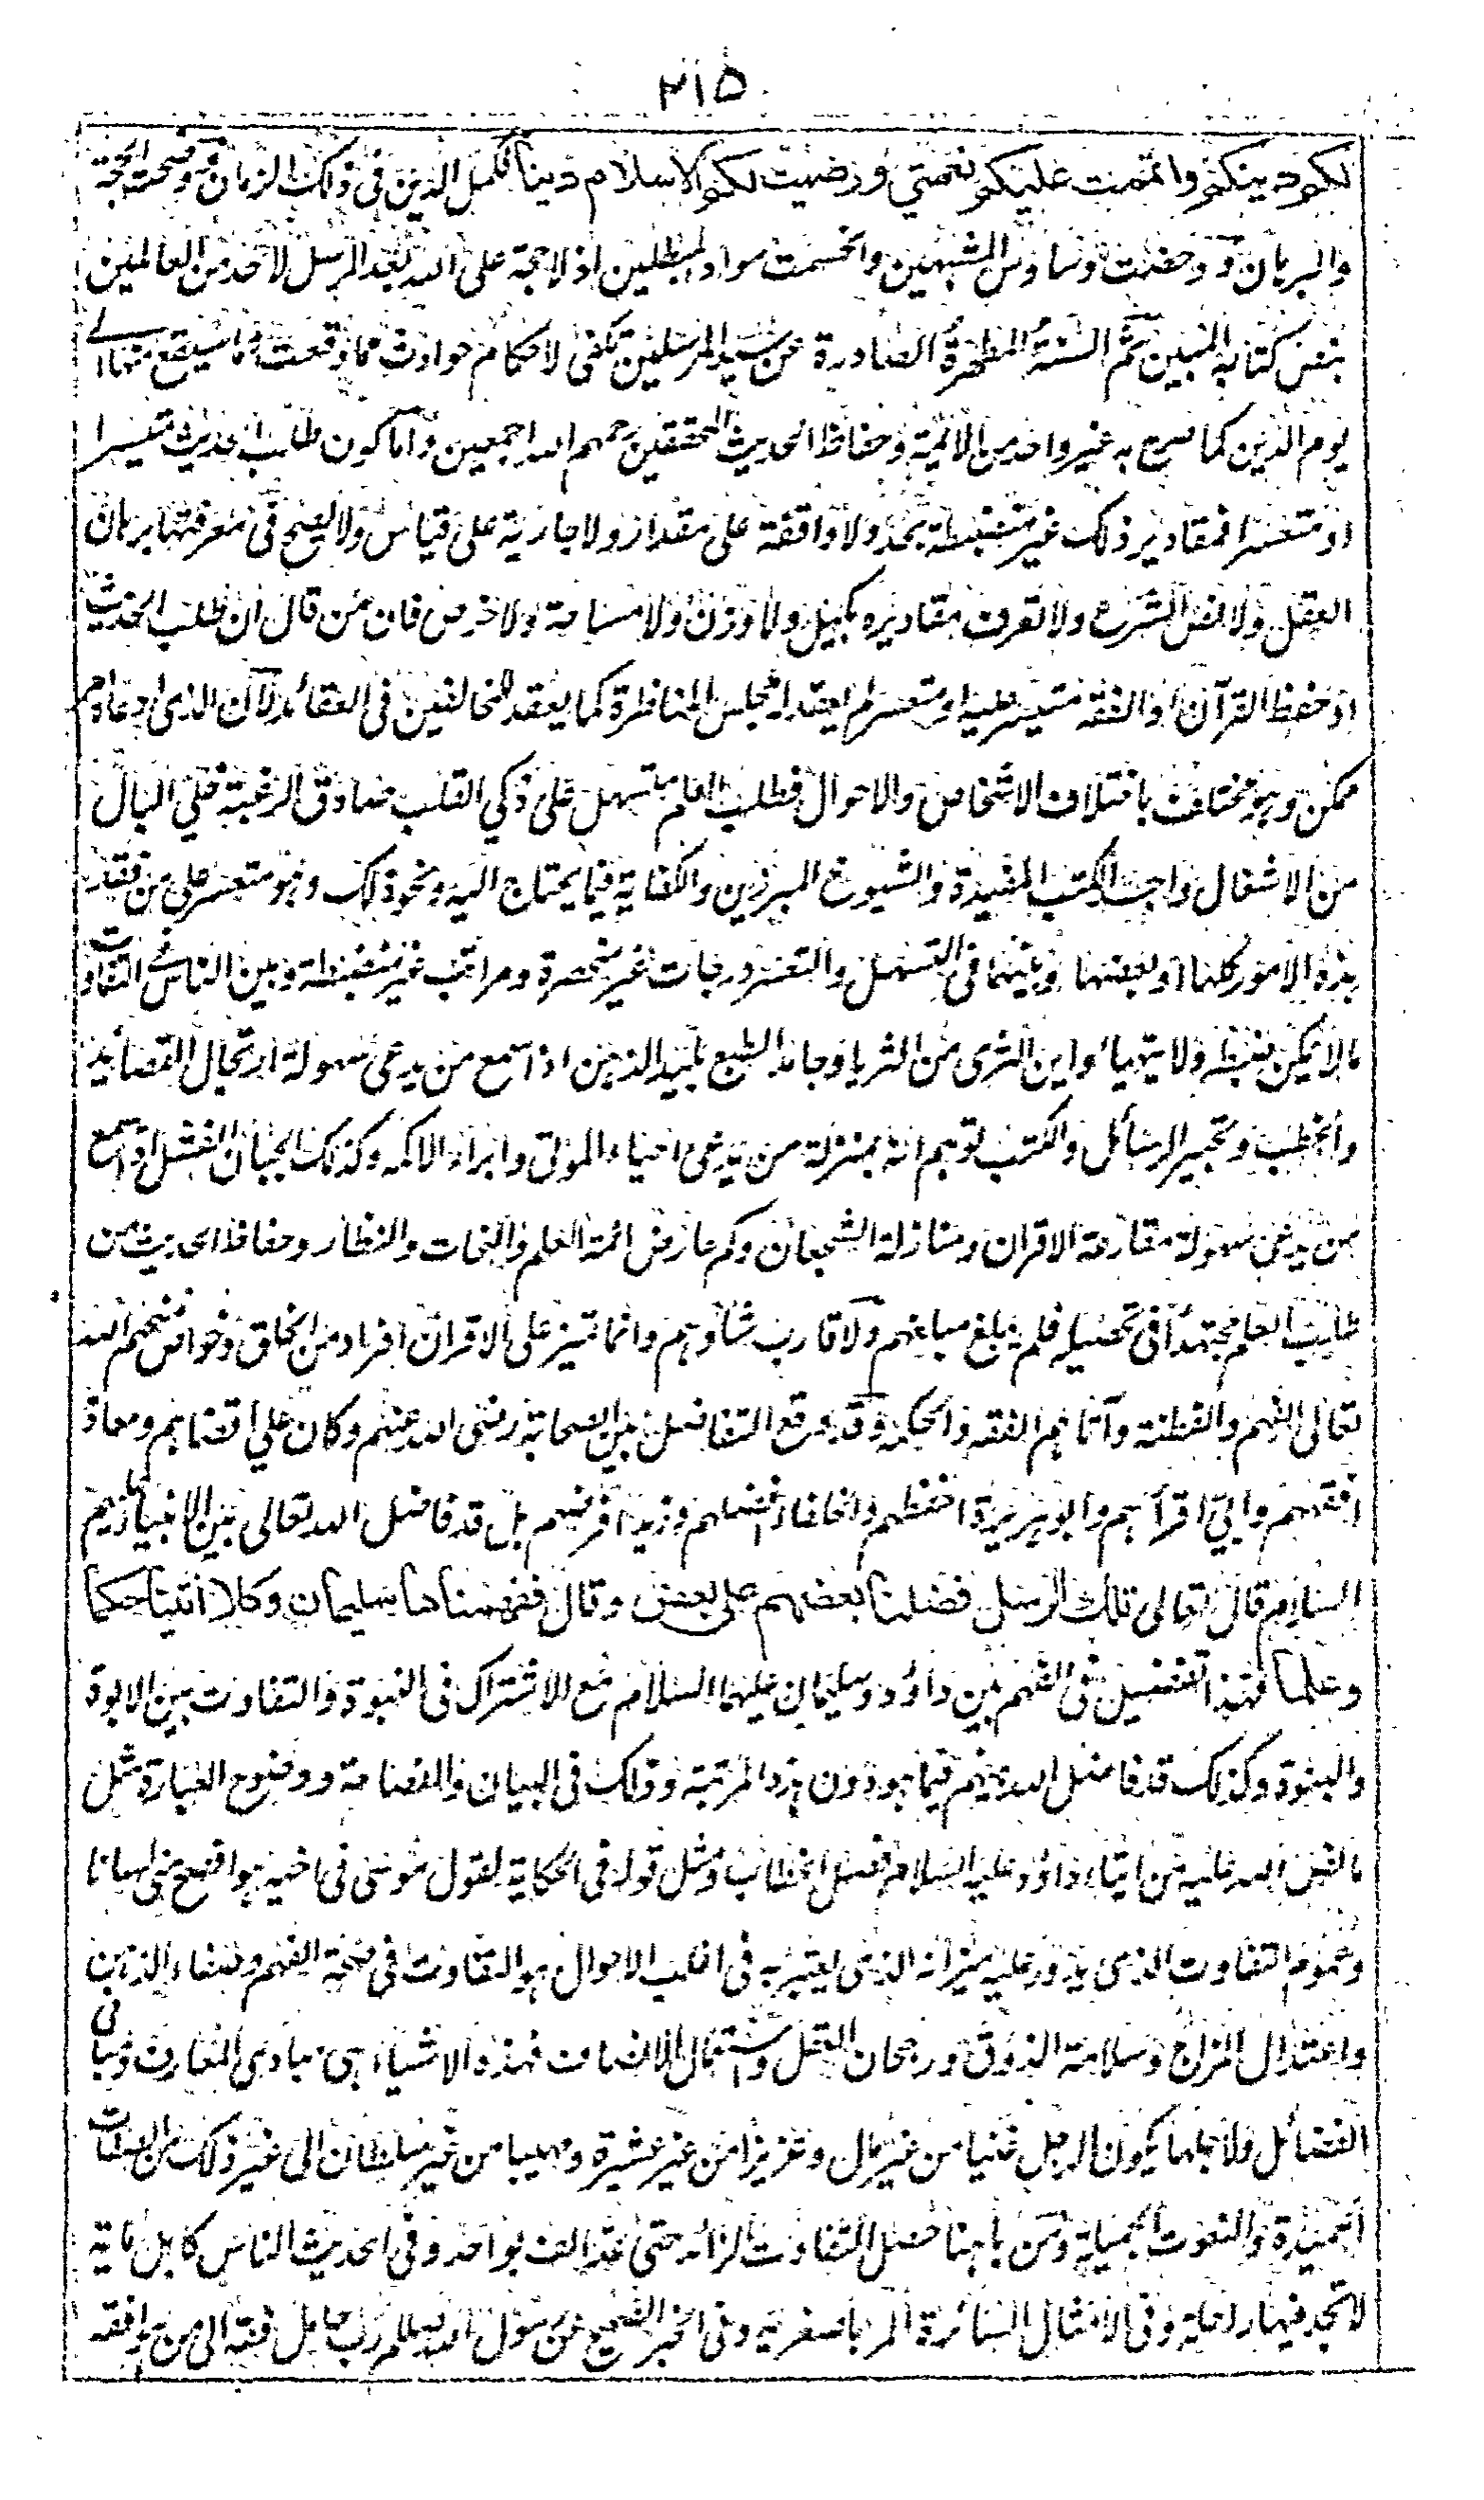 ٢١٥
لكم دينكم واتممت عليكم نعمتي ورضيت لكم الاسلام دينا فكمل الدين فى ذلك الزمان ووضحت الحجة
والبرهان ودحضت وساوس المشبهين وانحسمت مواد المبطلين اذ لا حجة على الله بعد الرسل لاحد من العالمين
بنص كتابه المبين ثم السنة المطهرة الصادرة عن سيد المرسلين تكفى لاحكام حوادث ما وقعت وما سيقع منها الى
يوم الدين كما صرح به غير واحد من الائمة وحفاظ الحديث المحققين رحمهم الله اجمعين واما كون طلب الحديث متيسرا
او متعسرا فمقادير ذلك غير منضبطة بحد ولا واقفة على مقدار ولا جارية على قياس ولا يصح فى معرفتها برهان
العقل ولا نص الشرع ولا تعرف مقاديره بكيل ولا وزن ولا مساحة ولا خرص فان من قال ان طلب الحديث
او حفظ القرآن او الفقه متيسر عليه او متعسر لم يعقد له مجلس المناظرة كما يعقد للمخالفين فى العقائد لان الذى ادعاه امر
ممكن وهو مختلف باختلاف الاشخاص والاحوال فطلب العلم يتسهل على ذكي القلب صادق الرغبة خلي البال
من الاشغال واجد الكتب المفيدة والشيوخ المبرزين والكفاية فيما يحتاج اليه ونحو ذلك وهو متعسر على من فقد
هذه الامور كلها او بعضها وبينهما فى التسهل والتعسر درجات غير منحصرة ومراتب غير منضبطة وبين الناس من التفاوت
ما لا يمكن ضبطه ولا يتهيأ واين الثرى من الثريا وجامد الطبع بليد الذهن اذا سمع من يدعى سهولة ارتجال القصائد
والخطب وتحبير الرسائل والكتب توهم انه بمنزلة من يدعى احياء الموتى وابراء الاكمه وكذلك الجبان الفشل اذا سمع
من يدعى سهولة مقارعة الاقران ومنازلة الشجعان وكم عارض ائمة العلم والنحات والنظار وحفاظ الحديث من
طلب العلم مجتهدا فى تحصيله فلم يبلغ مبلغهم ولا قارب شأوهم وانما تميز على الاقران افراد من الخلق وخواص منحهم الله
تعالى الفهم والفطنة وآتاهم الفقه والحكمة وقد وقع التفاضل بين الصحابة رضى الله عنهم وكان علي اقضاهم ومعاذ
افقههم وابيّ اقرأهم وابو هريرة احفظهم والخلفاء افضلهم وزيد افرضهم بل قد فاضل الله تعالى بين الانبياء عليهم
السلام قال تعالى تلك الرسل فضلنا بعضهم على بعض وقال ففهمناها سليمان وكلا اتينا حكما
وعلما فهذا تفضيل فى الفهم بين داؤد وسليمان عليهما السلام مع الاشتراك فى النبوة والتفاوت بين الابوة
والبنوة وكذلك قد فاضل الله بينهم فيما هو دون هذه المرتبة وذلك فى البيان والفصاحة ووضوح العبارة مثل
ما نص الله عليه من ايتاء داؤد عليه السلام فصل الخطاب ومثل قوله فى الحكاية لقول موسى فى اخيه هو افصح منى لسانا
وعموم التفاوت الذى يدور عليه ميزانه الذى يعتبر به فى اغلب الاحوال هو التفاوت فى صحة الفهم وصفاء الذهن
واعتدال المزاج وسلامة الذوق ورجحان العقل واستعمال الانصاف فهذه الاشياء هى مبادى المعارف ومبانى
الفضائل ولاجلها يكون الرجل غنيا من غير مال وعزيزا من غير عشيرة ومهيبا من غير سلطان الى غير ذلك من الصفات
الحميدة والنعوت الجميلة ومن هاهنا حصل التفاوت الزائد حتى عد الف بواحد وفى الحديث الناس كابل مائة
لا تجد فيها راحلة وفى الامثال السائرة المرء باصغريه وفى الخبر الصحيح عن رسول الله صلعم رب حامل فقه الى من هو افقه